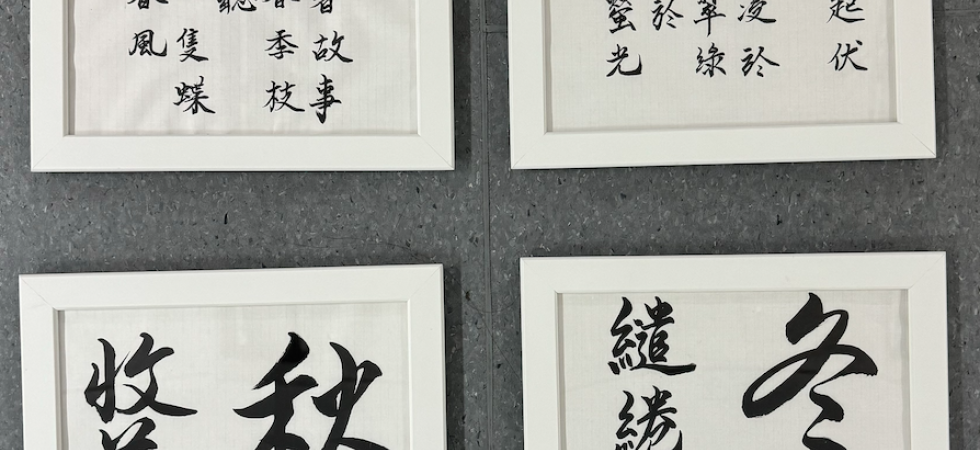 故事
春季枝
聽
隻蝶
春風
起伏
凌於
翠綠
於
螢光
秋
收
冬
繾綣